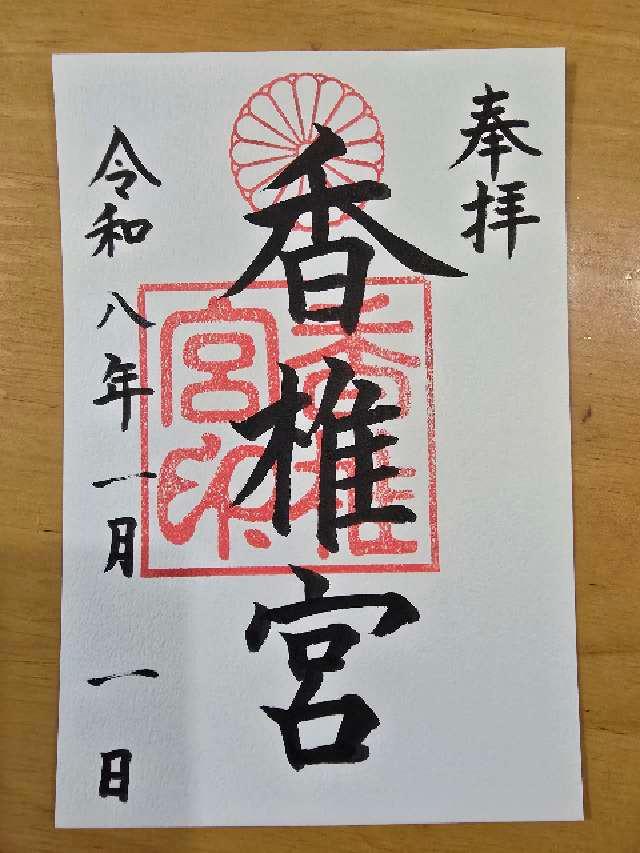 奉拝
香椎宮
香椎宮印
令和八年一月一日